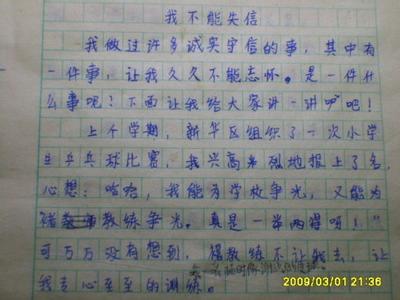 我不能失信
我做过许多诚实守信的事，其中有
一件事，让我久久不能忘怀。是一件什
么事呢？下面让我给大家讲一讲吧！
上个学期，新华区组织了一次小学
生乒乓球比赛，我兴高采烈地报上了名，
心想：哈哈，我能为学校争光，又能为
褚教练争光。真是一举两得呀！"
可万万没有想到，褚教练不让我去，让
我专心至至的训练。
2009/03/01 21:36